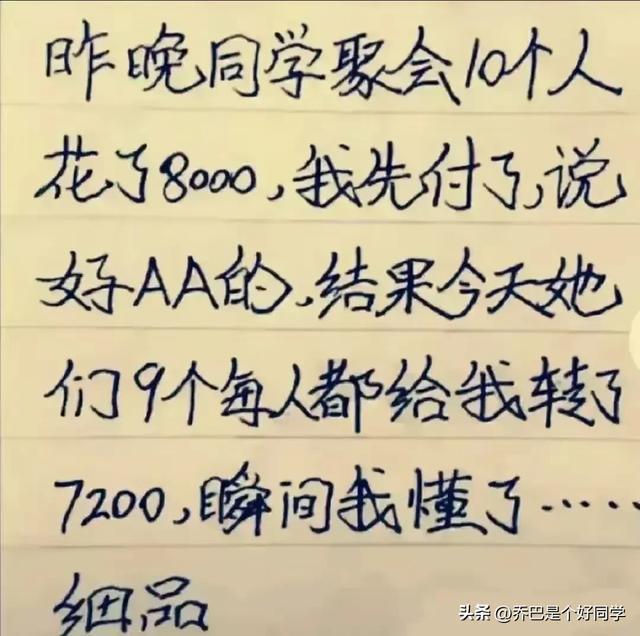 昨晚同学聚会10个人
花了8000,我先付了,说
好AA的,结果今天她
们9个每人都给我转了
7200,瞬间我懂了……
细品
头条 @乔巴是个好同学